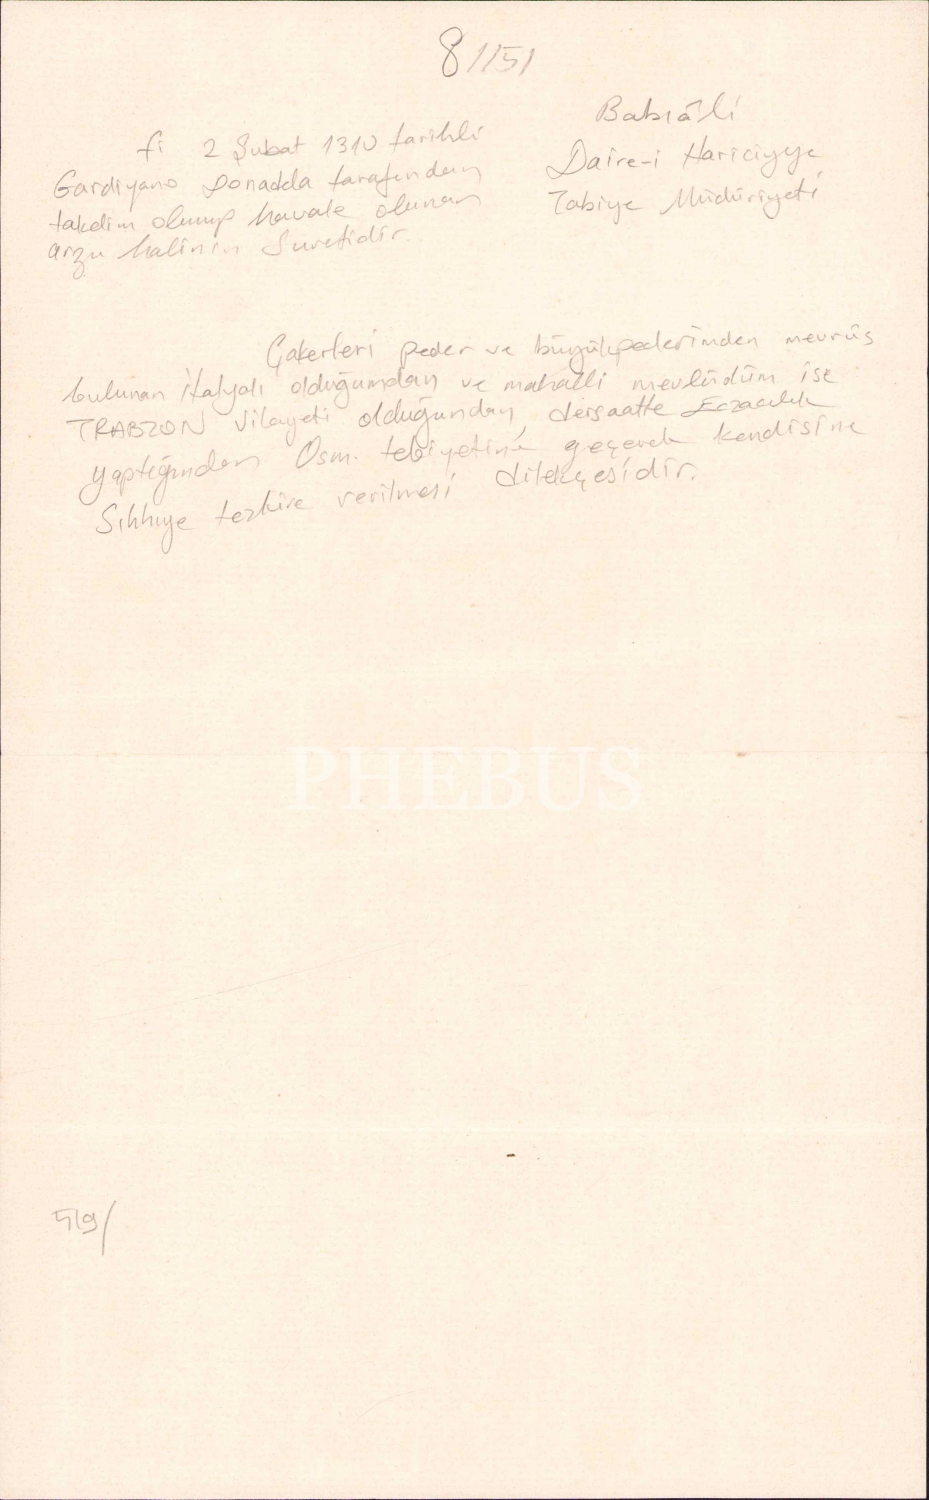 8/151
Babıâli
Daire-i Hariciyye
Tabiye Müdüriyeti
fi 2 Şubat 1310 tarihli
Gardiyano Donadda tarafından
takdim olunup havale olunan
arzu halinin Suretidir.
Çakerleri peder ve büyükpederimden mevrûs
bulunan İtalyalı olduğumdan ve mahalli mevlûdüm ise
TRABZON Vilayeti olduğundan, dersaatte Eczacılık
yaptığından Osm. tebiyetine geçerek kendisine
Sıhhıye tezkire verilmesi dilekçesidir.
PHEBUS
519/